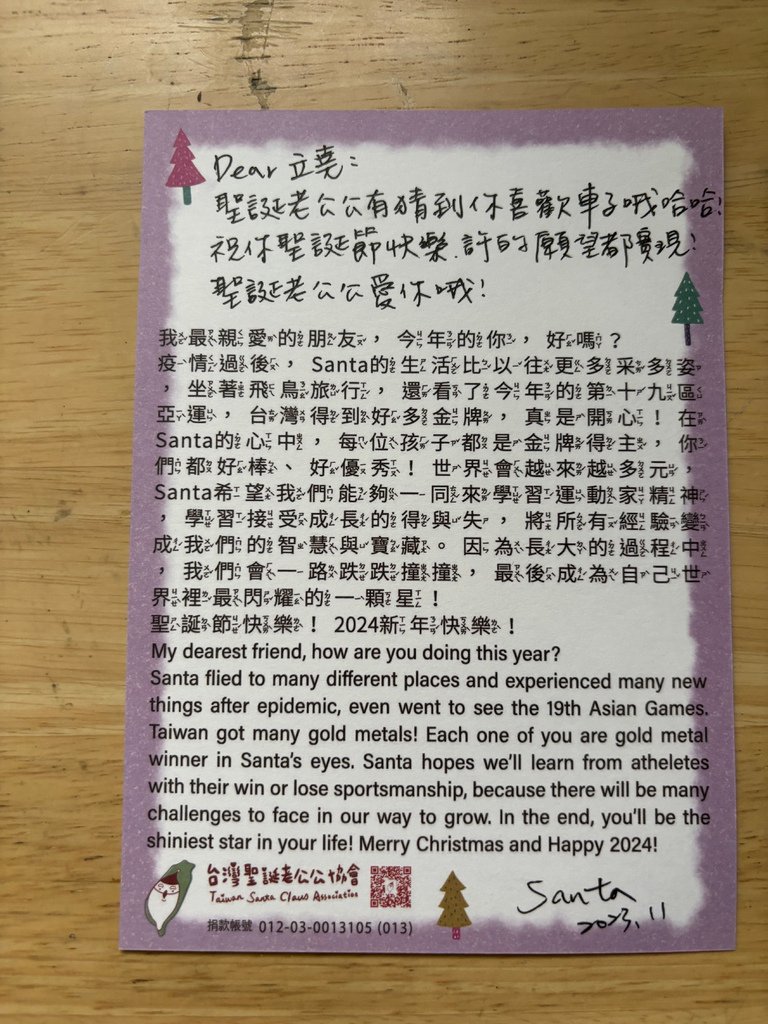 Dear 立堯：
聖誕老公公有猜到你喜歡車子哦哈哈！
祝你聖誕節快樂，許的願望都實現！
聖誕老公公愛你哦！
我最親愛的朋友，今年的你，好嗎？
疫情過後，Santa的生活比以往更多采多姿
，坐著飛鳥旅行，還看了今年的第十九區
亞運，台灣得到好多金牌，真是開心！在
Santa的心中，每位孩子都是金牌得主，你
們都好棒、好優秀！世界會越來越多元，
Santa希望我們能夠一同來學習運動家精神
，學習接受成長的得與失，將所有經驗變
成我們的智慧與寶藏。因為長大的過程中
，我們會一路跌跌撞撞，最後成為自己世
界裡最閃耀的一顆星！
聖誕節快樂！2024新年快樂！
My dearest friend, how are you doing this year?
Santa flied to many different places and experienced many new
things after epidemic, even went to see the 19th Asian Games.
Taiwan got many gold metals! Each one of you are gold metal
winner in Santa's eyes. Santa hopes we'll learn from atheletes
with their win or lose sportsmanship, because there will be many
challenges to face in our way to grow. In the end, you'll be the
shiniest star in your life! Merry Christmas and Happy 2024!
台灣聖誕老公公協會
Taiwan Santa Claus Association
捐款帳號 012-03-0013105 (013)
Santa
2023.11